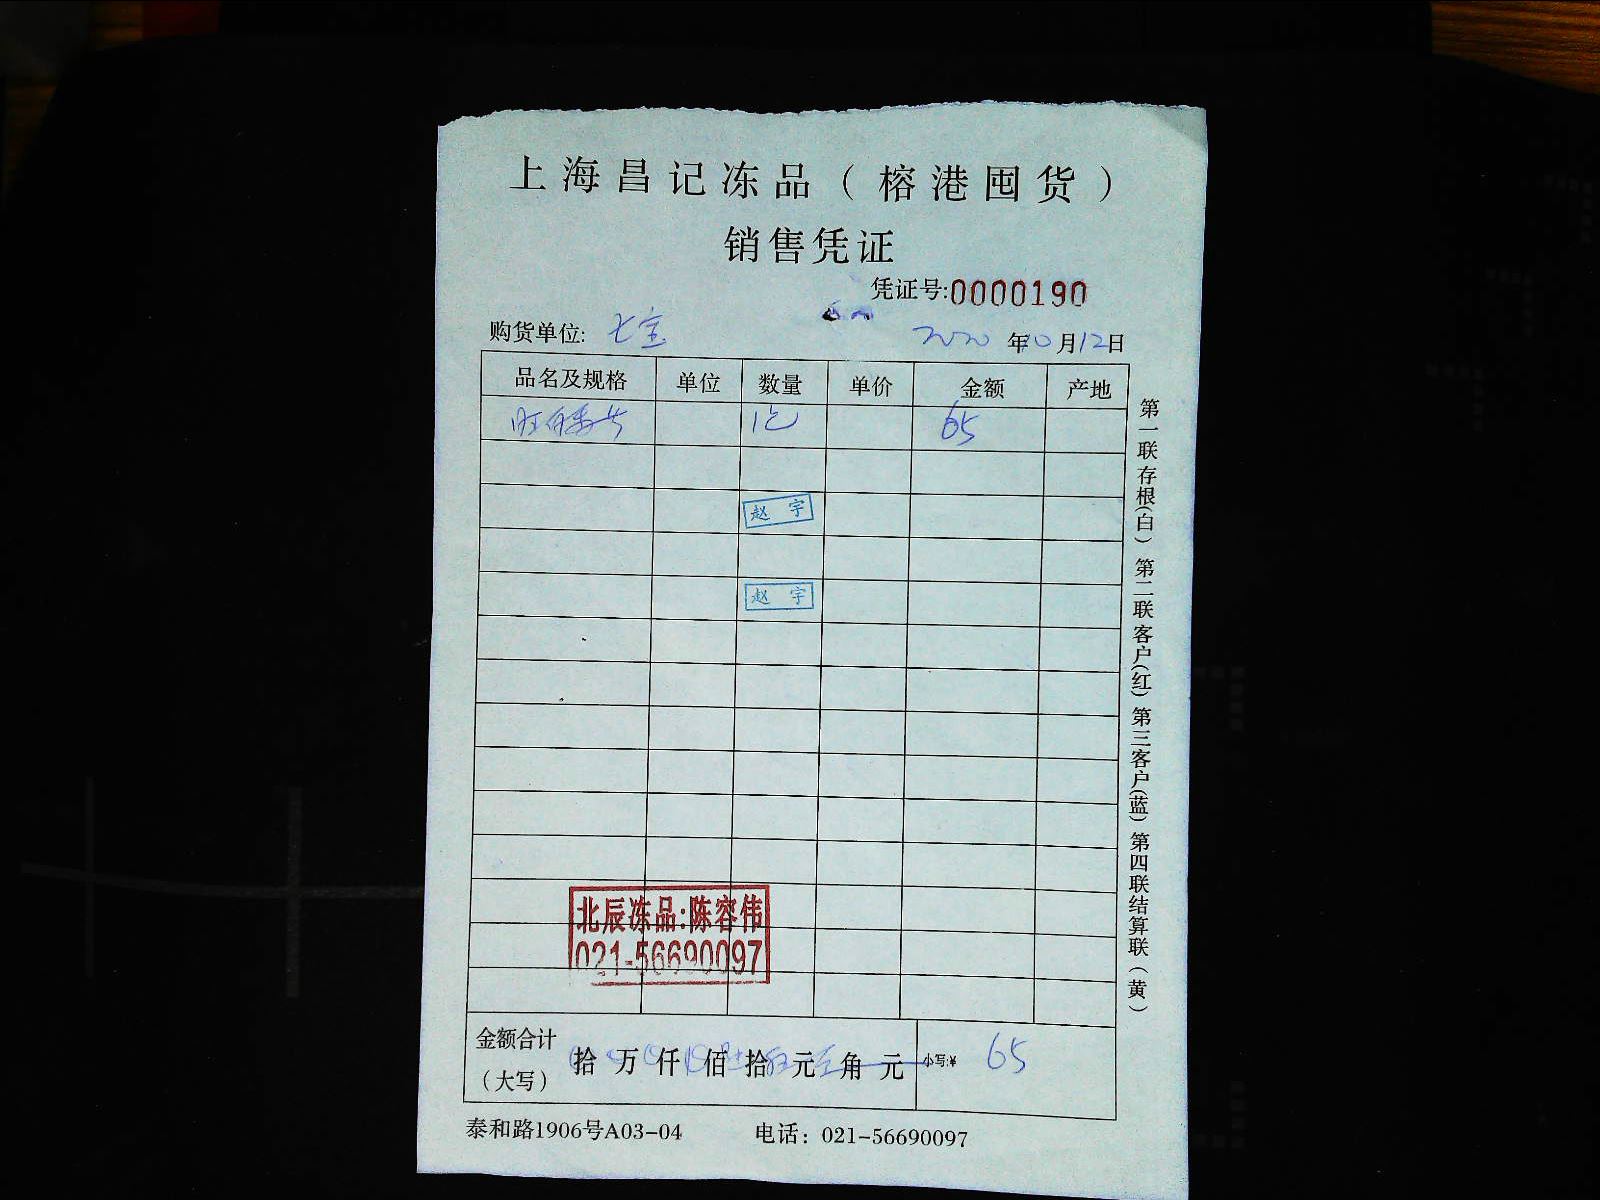 上海昌记冻品（榕港囤货）
销售凭证
凭证号:0000190
购货单位: 七宝 2020年10月12日
品名及规格 单位 数量 单价 金额 产地
1包 65
赵 宇
赵 宇
北辰冻品:陈容伟
021-56690097
金额合计（大写） 拾 万 仟 佰 陆拾 伍元 角 元 小写:¥ 65
泰和路1906号A03-04 电话：021-56690097
第一联存根(白) 第二联客户(红) 第三客户(蓝) 第四联结算联(黄)